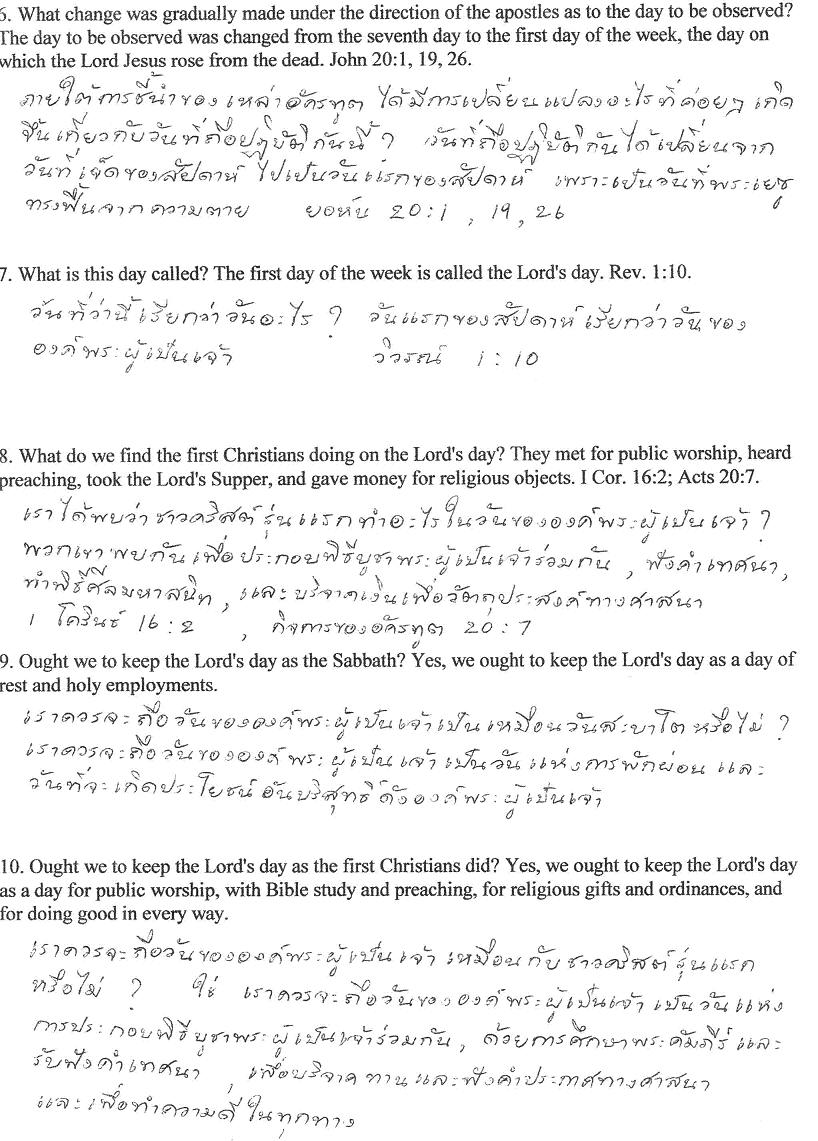 6. What change was gradually made under the direction of the apostles as to the day to be observed?
The day to be observed was changed from the seventh day to the first day of the week, the day on
which the Lord Jesus rose from the dead. John 20:1, 19, 26.
ภายใต้การชี้นำของเหล่าอัครทูต ได้มีการเปลี่ยนแปลงอะไรที่ค่อยๆ เกิด
ขึ้นเกี่ยวกับวันที่ถือปฏิบัติกันนี้ ? วันที่ถือปฏิบัติกันได้เปลี่ยนจาก
วันที่เจ็ดของสัปดาห์ ไปเป็นวันแรกของสัปดาห์ เพราะเป็นวันที่พระเยซู
ทรงฟื้นจากความตาย ยอห์น 20:1 , 19, 26
7. What is this day called? The first day of the week is called the Lord's day. Rev. 1:10.
วันที่ว่านี้เรียกว่าวันอะไร ? วันแรกของสัปดาห์เรียกว่าวันของ
องค์พระผู้เป็นเจ้า วิวรณ์ 1:10
8. What do we find the first Christians doing on the Lord's day? They met for public worship, heard
preaching, took the Lord's Supper, and gave money for religious objects. I Cor. 16:2; Acts 20:7.
เราได้พบว่าชาวคริสต์รุ่นแรกทำอะไรในวันขององค์พระผู้เป็นเจ้า ?
พวกเขาพบกันเพื่อประกอบพิธีบูชาพระผู้เป็นเจ้าร่วมกัน , ฟังคำเทศนา,
ทำพิธีศีลมหาสนิท , และบริจาคเงินเพื่อวัตถุประสงค์ทางศาสนา
1 โครินธ์ 16:2 , กิจการของอัครทูต 20:7
9. Ought we to keep the Lord's day as the Sabbath? Yes, we ought to keep the Lord's day as a day of
rest and holy employments.
เราควรจะถือวันขององค์พระผู้เป็นเจ้าเป็นเหมือนวันสะบาโตหรือไม่ ?
เราควรจะถือวันขององค์พระผู้เป็นเจ้าเป็นวันแห่งการพักผ่อน และ
วันที่จะเกิดประโยชน์อันบริสุทธิ์ดังองค์พระผู้เป็นเจ้า
10. Ought we to keep the Lord's day as the first Christians did? Yes, we ought to keep the Lord's day
as a day for public worship, with Bible study and preaching, for religious gifts and ordinances, and
for doing good in every way.
เราควรจะถือวันขององค์พระผู้เป็นเจ้า เหมือนกับชาวคริสต์รุ่นแรก
หรือไม่ ? ใช่ เราควรจะถือวันขององค์พระผู้เป็นเจ้า เป็นวันแห่ง
การประกอบพิธีบูชาพระผู้เป็นเจ้าร่วมกัน , ด้วยการศึกษาพระคัมภีร์และ
รับฟังคำเทศนา , เพื่อบริจาคทานและฟังคำประกาศทางศาสนา
และเพื่อทำความดีในทุกทาง